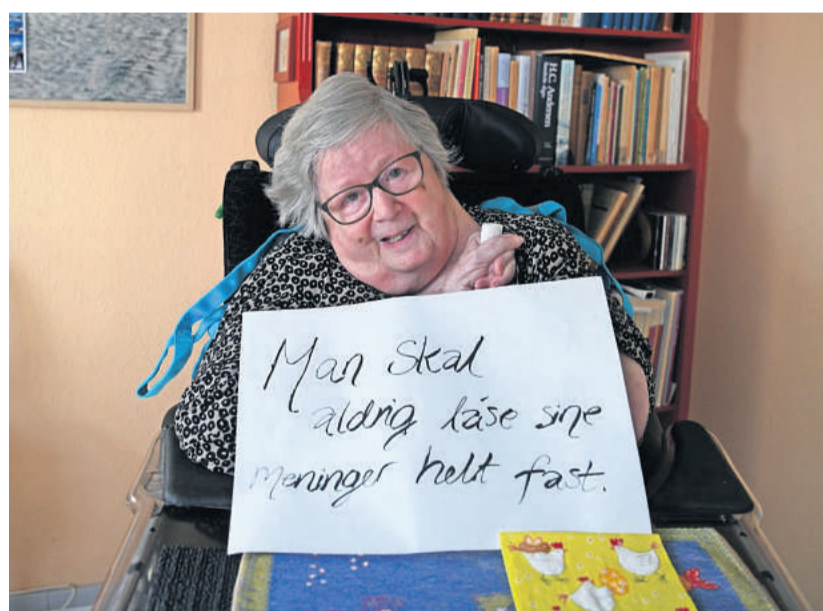 H.C. Andersen
Man skal
aldrig låse sine
meninger helt fast.